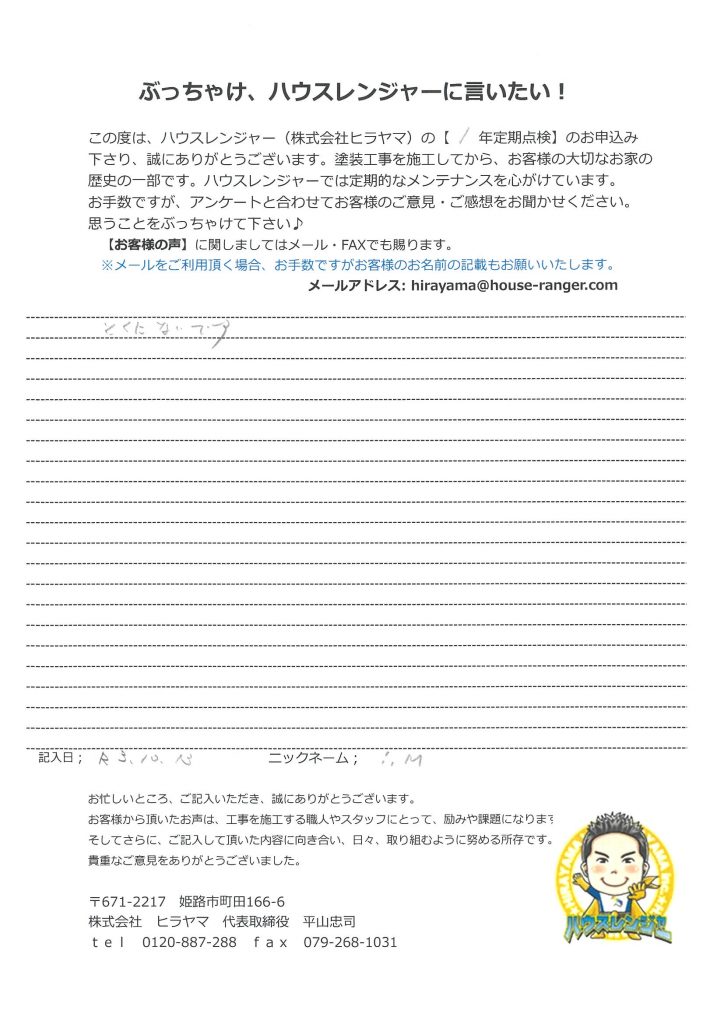 ぶっちゃけ、ハウスレンジャーに言いたい！
この度は、ハウスレンジャー（株式会社ヒラヤマ）の【 1 年定期点検】のお申込み
下さり、誠にありがとうございます。塗装工事を施工してから、お客様の大切なお家の
歴史の一部です。ハウスレンジャーでは定期的なメンテナンスを心がけています。
お手数ですが、アンケートと合わせてお客様のご意見・ご感想をお聞かせください。
思うことをぶっちゃけて下さい♪
【お客様の声】に関しましてはメール・FAXでも賜ります。
※メールをご利用頂く場合、お手数ですがお客様のお名前の記載もお願いいたします。
メールアドレス: hirayama@house-ranger.com
とくにないです
記入日； R 3.10. ニックネーム； M
お忙しいところ、ご記入いただき、誠にありがとうございます。
お客様から頂いたお声は、工事を施工する職人やスタッフにとって、励みや課題になります
そしてさらに、ご記入して頂いた内容に向き合い、日々、取り組むように努める所存です。
貴重なご意見をありがとうございました。
〒671-2217 姫路市町田166-6
株式会社 ヒラヤマ 代表取締役 平山忠司
ｔｅｌ 0120-887-288 ｆａｘ 079-268-1031
ハウスレンジャー